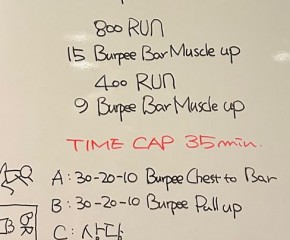 800 RUN
15 Burpee Bar Muscle up
400 RUN
9 Burpee Bar Muscle up
TIME CAP 35min.
A: 30-20-10 Burpee Chest to Bar
B: 30-20-10 Burpee Pull up
C: 상담
B